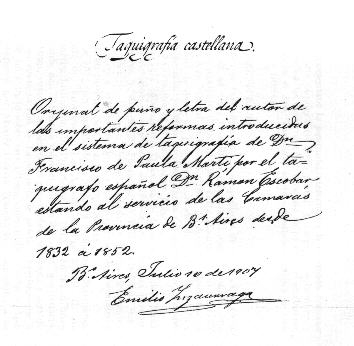 Taquigrafía castellana.
Original de puño y letra del autor de
las importantes reformas introducidas
en el sistema de taquigrafía de Dn
Francisco de Paula Martí, por el ta-
quígrafo español Dn Ramon Escobar,
estando al servicio de las Camaras
de la Provincia de Bs Aires desde
1832 á 1852.
Bs Aires, Julio 10 de 1907
Emilio